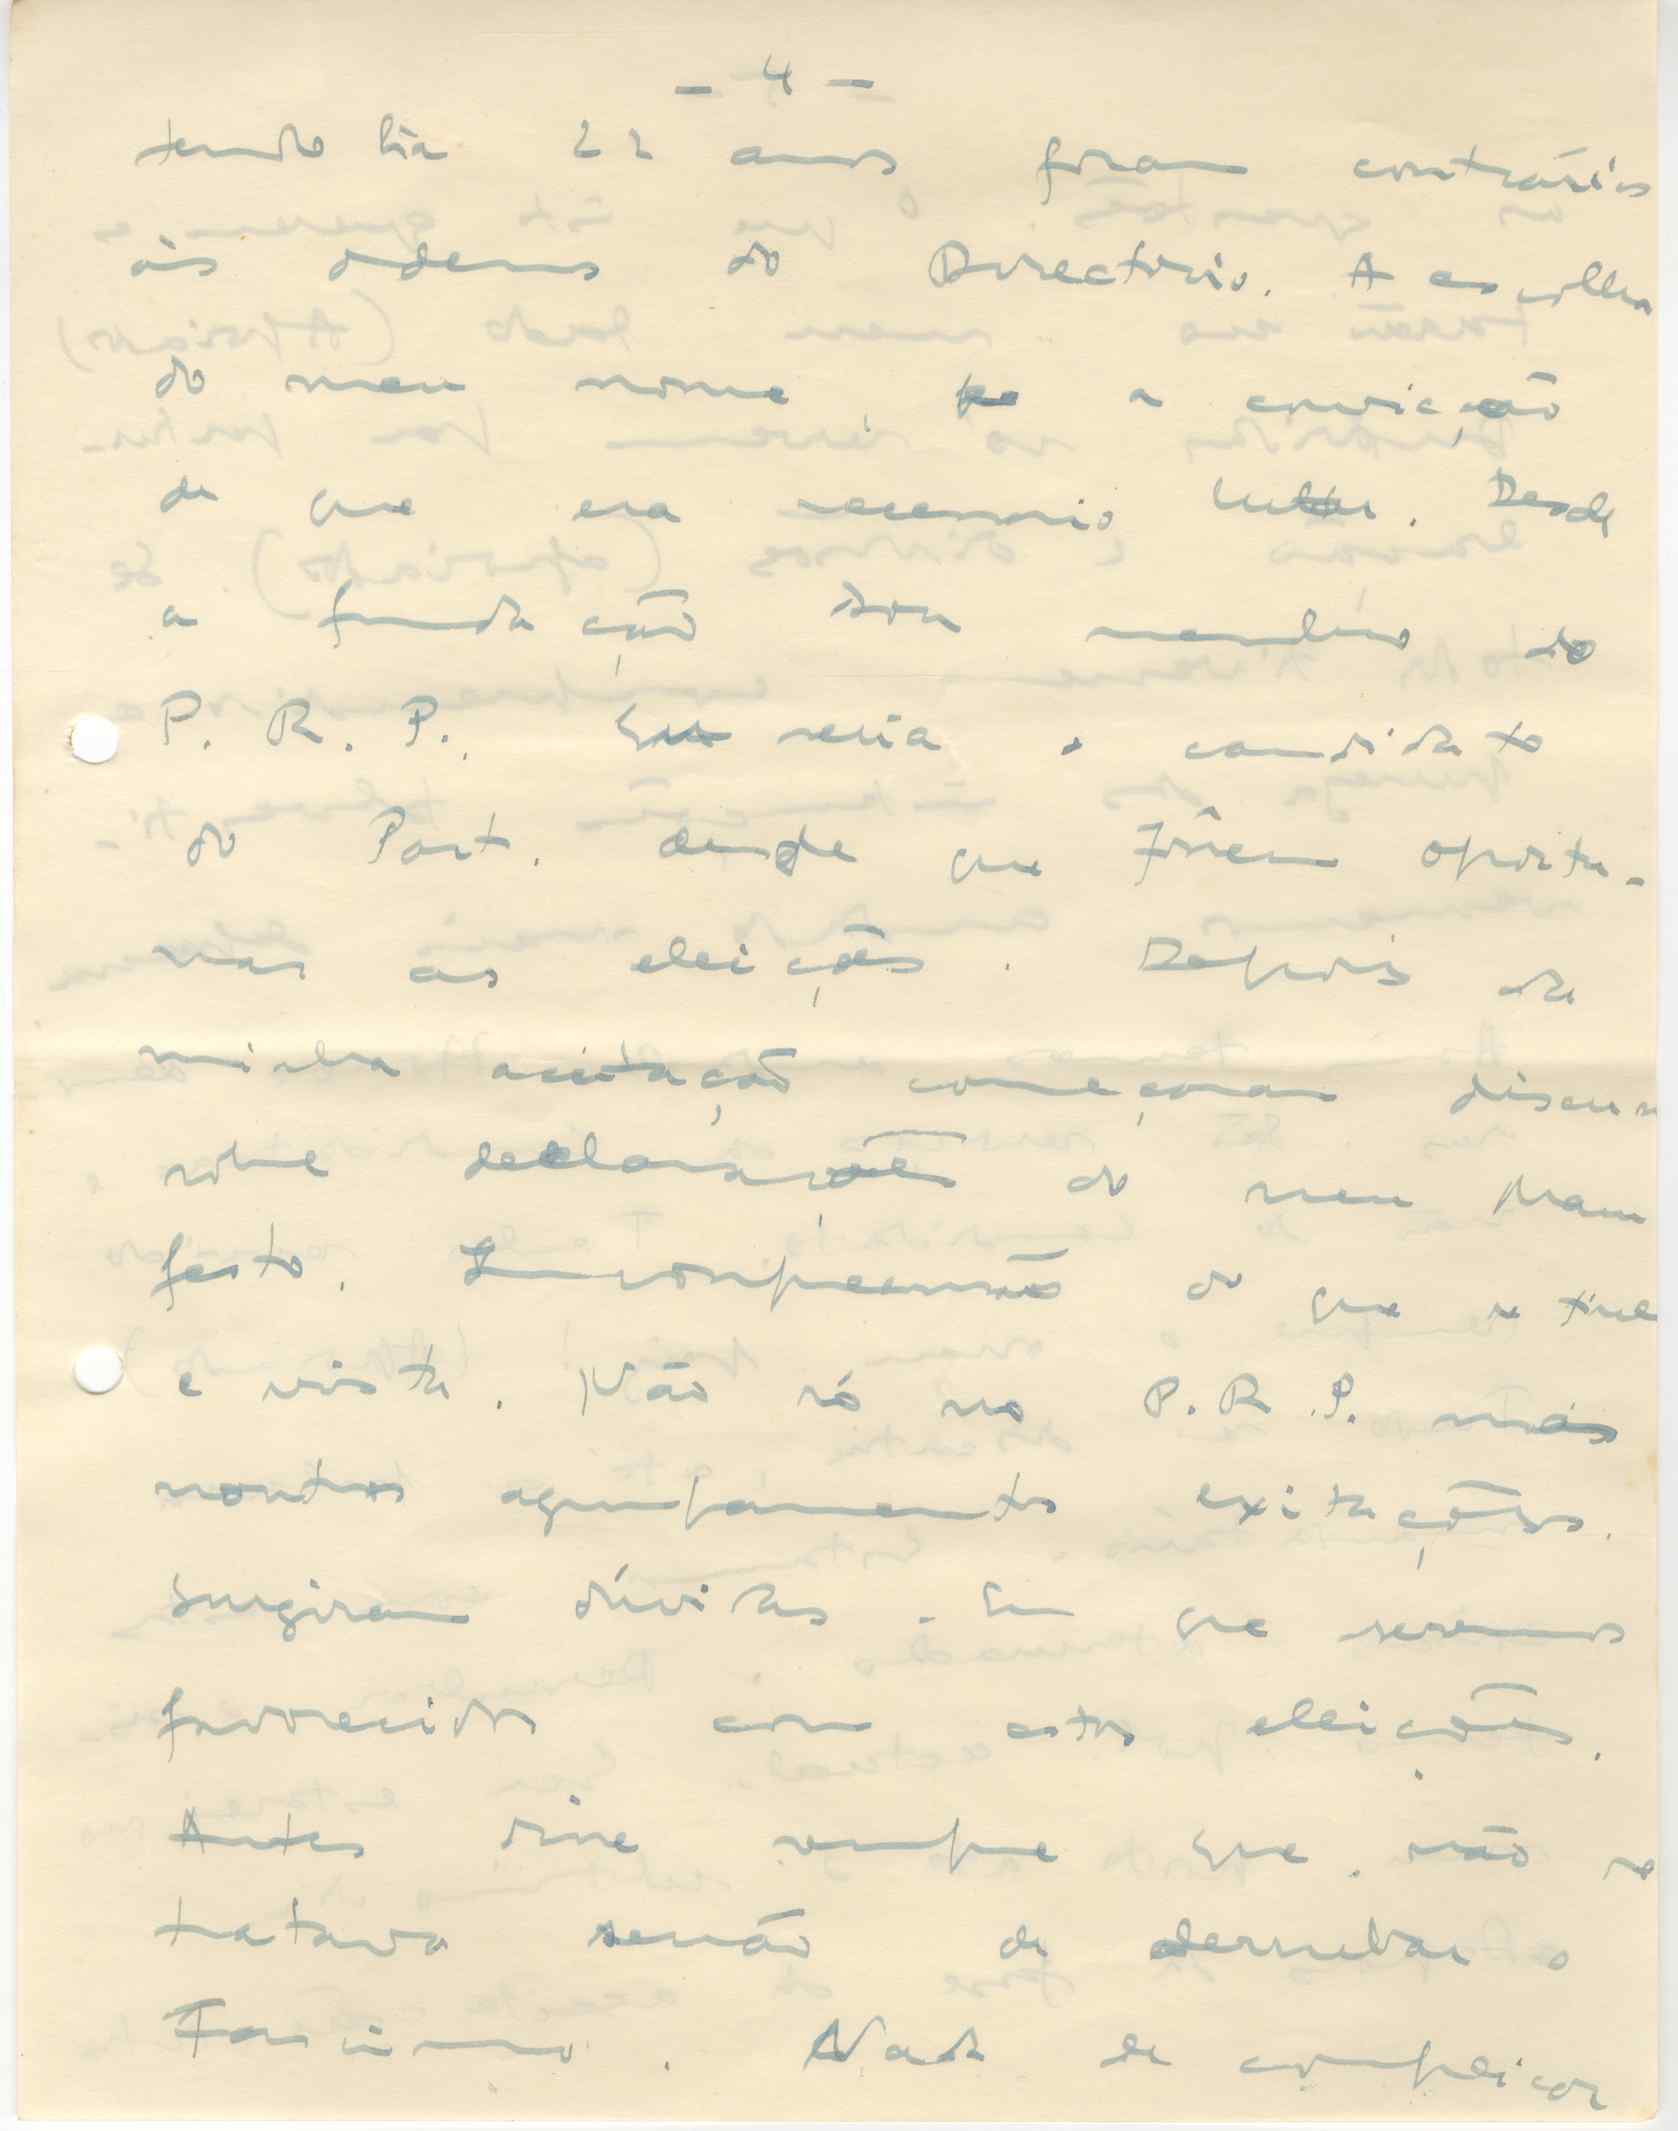 - 4 -
tendo há 22 anos foram contrários
ás ordens do Directorio. A escolha
do meu nome, a convicção
de que era necessario lutar. Desde
a fundação sou membro do
P. R. P. Eu seria o candidato
do Part. desde que fôssem oportu-
nas as eleições. Depois da
minha aceitação começaram
sobre declarações do meu Mani
festo. Incompreensão do que se tive
e vista. Não só no P. R. P. mas
noutros agrupamentos exitações.
Surgiram dúvidas. Em que seremos
favorecidos com estas eleições.
Antes disse sempre que não se
tratava senão de derrubar o
Fascismo. Nada de complicar